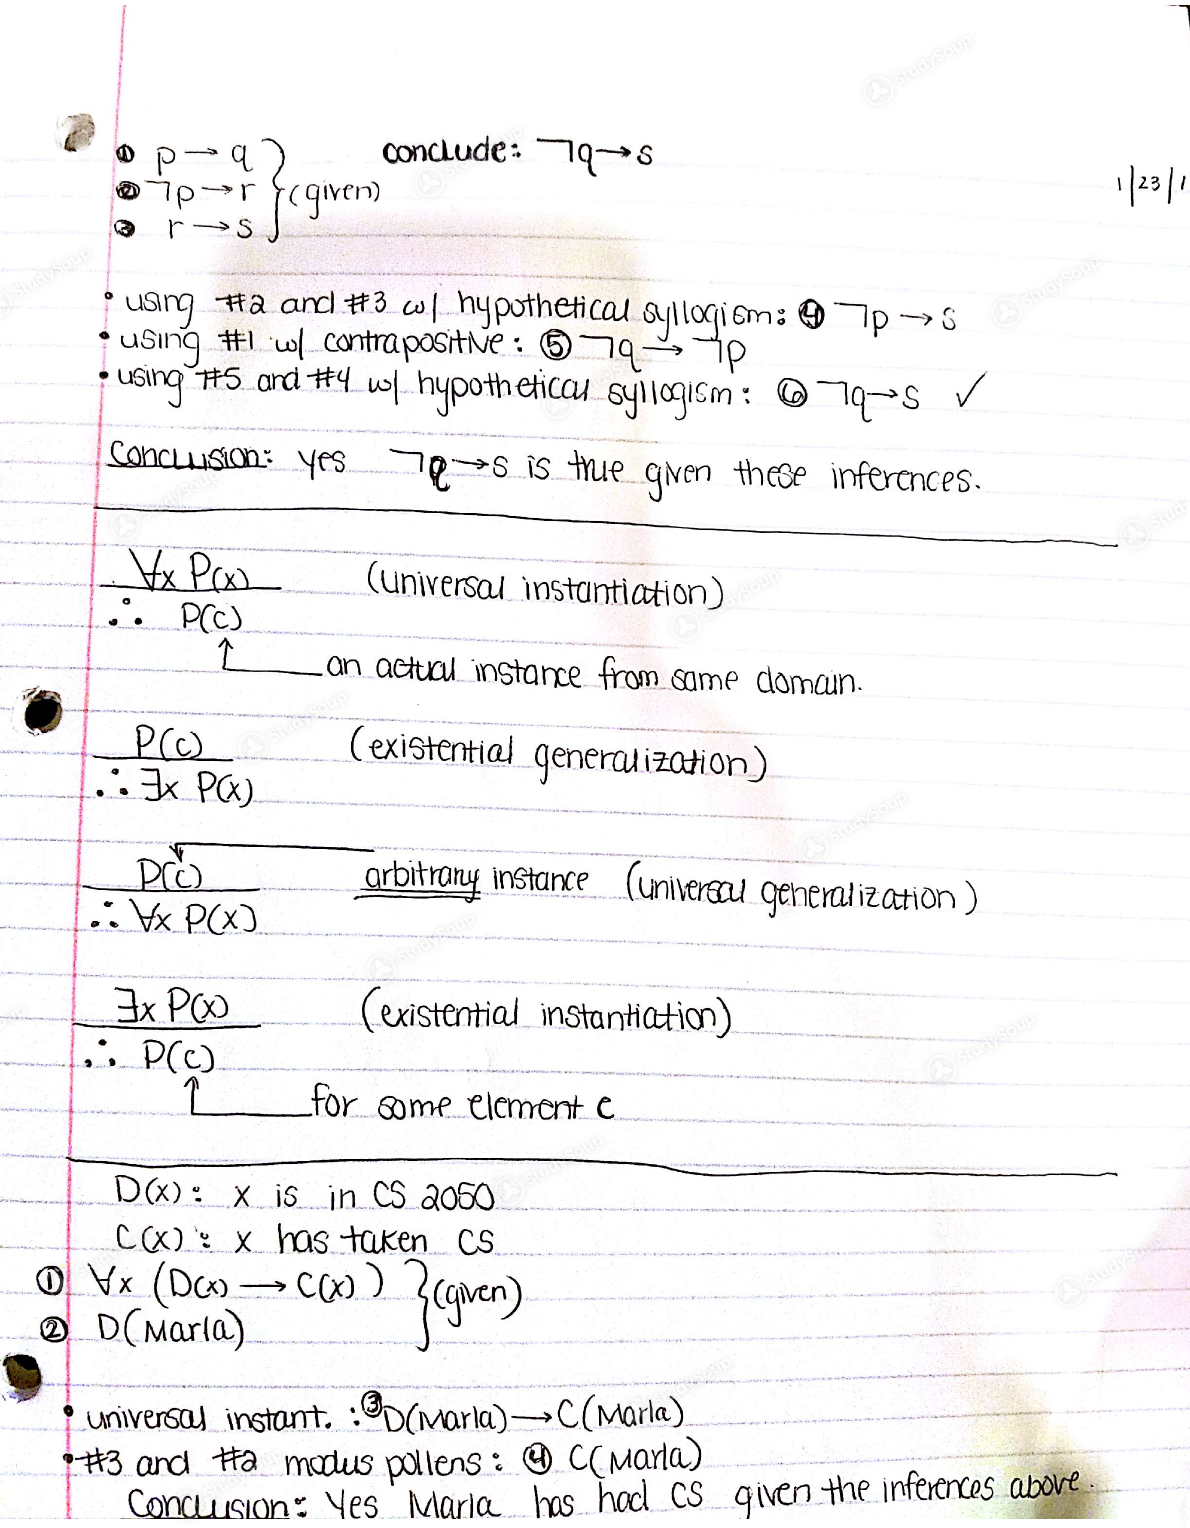 ① p → q } conclude: ¬q → s
② ¬p → r } (given)
1/23/1
③ r → s
• using #2 and #3 w/ hypothetical syllogism: ④ ¬p → s
• using #1 w/ contrapositive: ⑤ ¬q → ¬p
• using #5 and #4 w/ hypothetical syllogism: ⑥ ¬q → s ✓
Conclusion: yes ¬q → s is true given these inferences.
∀x P(x) (universal instantiation)
∴ P(c)
an actual instance from same domain.
P(c) (existential generalization)
∴ ∃x P(x)
P(c) arbitrary instance (universal generalization)
∴ ∀x P(x)
∃x P(x) (existential instantiation)
∴ P(c)
for some element c
D(x): x is in CS 2050
C(x): x has taken CS
① ∀x (D(x) → C(x)) } (given)
② D(Marla)
• universal instant. : ③ D(Marla) → C(Marla)
• #3 and #2 modus pollens: ④ C(Marla)
Conclusion: Yes Marla has had CS given the inferences above.
StudySoup